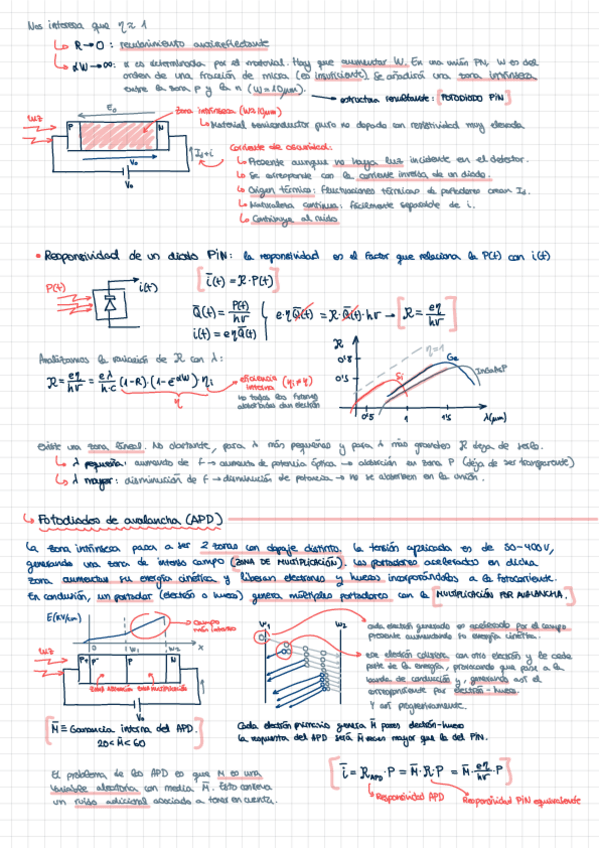 Nos interesa que η ≈ 1
R→0: recubrimiento antirreflectante
αW→∞: α es determinada por el material. Hay que aumentar W. En una unión PN, W es del
orden de una fracción de micra (es insuficiente). Se añadirá una zona intrínseca
entre la zona p y la n (W≈10μm).
estructura resultante: [FOTODIODO PIN]
E₀
zona intrínseca (W≈10μm)
Material semiconductor puro no dopado con resistividad muy elevada
P
N
V₀
V₀
I_d+i
Corriente de oscuridad:
Presente aunque no haya luz incidente en el detector.
Se corresponde con la corriente inversa de un diodo.
Origen térmico: fluctuaciones térmicas de portadores crean I_d.
Naturaleza continua: fácilmente separable de i.
Contribuye al ruido
• Responsividad de un diodo PiN: la responsividad es el factor que relaciona la P(t) con i(t)
P(t)
i(t)
[i̅(t) = R·P(t)]
Q̅(t) = P(t)/hν
i(t) = eηQ̅(t)
e·ηQ̅(t) = R·Q̅(t)·hν → [R = eη/hν]
Analizamos la variación de R con λ:
R = eη/hν = eλ/h·c (1-R)·(1-e^-αW) ηi
η
eficiencia
interna (ηi≠η)
no todos los fotones
absorbidos dan electrón
R
0'8
0'5
η=1
Si
Ge
InGaAsP
0'5
1
1'5
λ(μm)
Existe una zona lineal. No obstante, para λ más pequeñas y para λ más grandes R deja de serlo.
λ pequeña: aumento de f → aumento de potencia óptica → absorción en zona P (deja de ser transparente)
λ mayor: disminución de f → disminución de potencia → no se absorben en la unión.
Fotodiodos de avalancha (APD)
La zona intrínseca pasa a ser 2 zonas con dopaje distinto. La tensión aplicada es de 50-400V,
generando una zona de intenso campo (ZONA DE MULTIPLICACIÓN). Los portadores acelerados en dicha
zona aumentan su energía cinética y liberan electrones y huecos incorporándolos a la fotocorriente.
En conclusión, un portador (electrón o hueco) genera múltiples portadores con la [MULTIPLICACIÓN POR AVALANCHA.]
E(KV/cm)
campo
más intenso
W1
W2
x
P+
P-
P
N
zona absorción
zona multiplicación
V₀
W1
W2
cada electrón generado es acelerado por el campo
presente aumentando su energía cinética.
ese electrón colisiona con otro electrón y le cede
parte de la energía, provocando que pase a la
banda de conducción y, generando así el
correspondiente par electrón-hueco.
Y así progresivamente.
[M̅ ≡ Ganancia interna del APD.
20<M̅<60]
Cada electrón primario genera M̅ pares electrón-hueco
la respuesta del APD será M̅ veces mayor que la del PiN.
El problema de los APD es que M es una
variable aleatoria con media M̅. Esto conlleva
un ruido adicional asociado a tener en cuenta.
[i̅ = R_APD·P = M̅·R·P = M̅·eη/hν·P]
Responsividad APD
Responsividad PiN equivalente